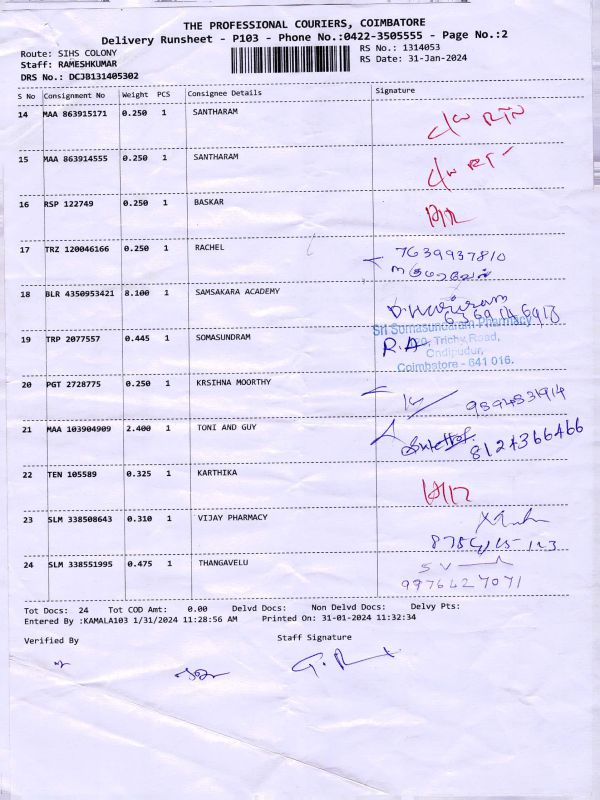 THE PROFESSIONAL COURIERS, COIMBATORE
Delivery Runsheet - P103 - Phone No.:0422-3505555 - Page No.:2
Route: SIHS COLONY RS No.: 1314053
Staff: RAMESHKUMAR RS Date: 31-Jan-2024
DRS No.: DCJB131405302
S No Consignment No Weight PCS Consignee Details Signature
14 MAA 863915171 0.250 1 SANTHARAM
15 MAA 863914555 0.250 1 SANTHARAM
16 RSP 122749 0.250 1 BASKAR
17 TRZ 120046166 0.250 1 RACHEL 7639937810
18 BLR 4350953421 8.100 1 SAMSAKARA ACADEMY
19 TRP 2077557 0.445 1 SOMASUNDRAM R.A
Sri Somasundaram Pharmacy
Trichy Road,
Ondipudur,
Coimbatore - 641 016.
20 PGT 2728775 0.250 1 KRSIHNA MOORTHY
21 MAA 103904909 2.400 1 TONI AND GUY 8124366466
22 TEN 105589 0.325 1 KARTHIKA
23 SLM 338508643 0.310 1 VIJAY PHARMACY
24 SLM 338551995 0.475 1 THANGAVELU S V
9976427071
Tot Docs: 24 Tot COD Amt: 0.00 Delvd Docs: Non Delvd Docs: Delvy Pts:
Entered By :KAMALA103 1/31/2024 11:28:56 AM Printed On: 31-01-2024 11:32:34
Verified By Staff Signature